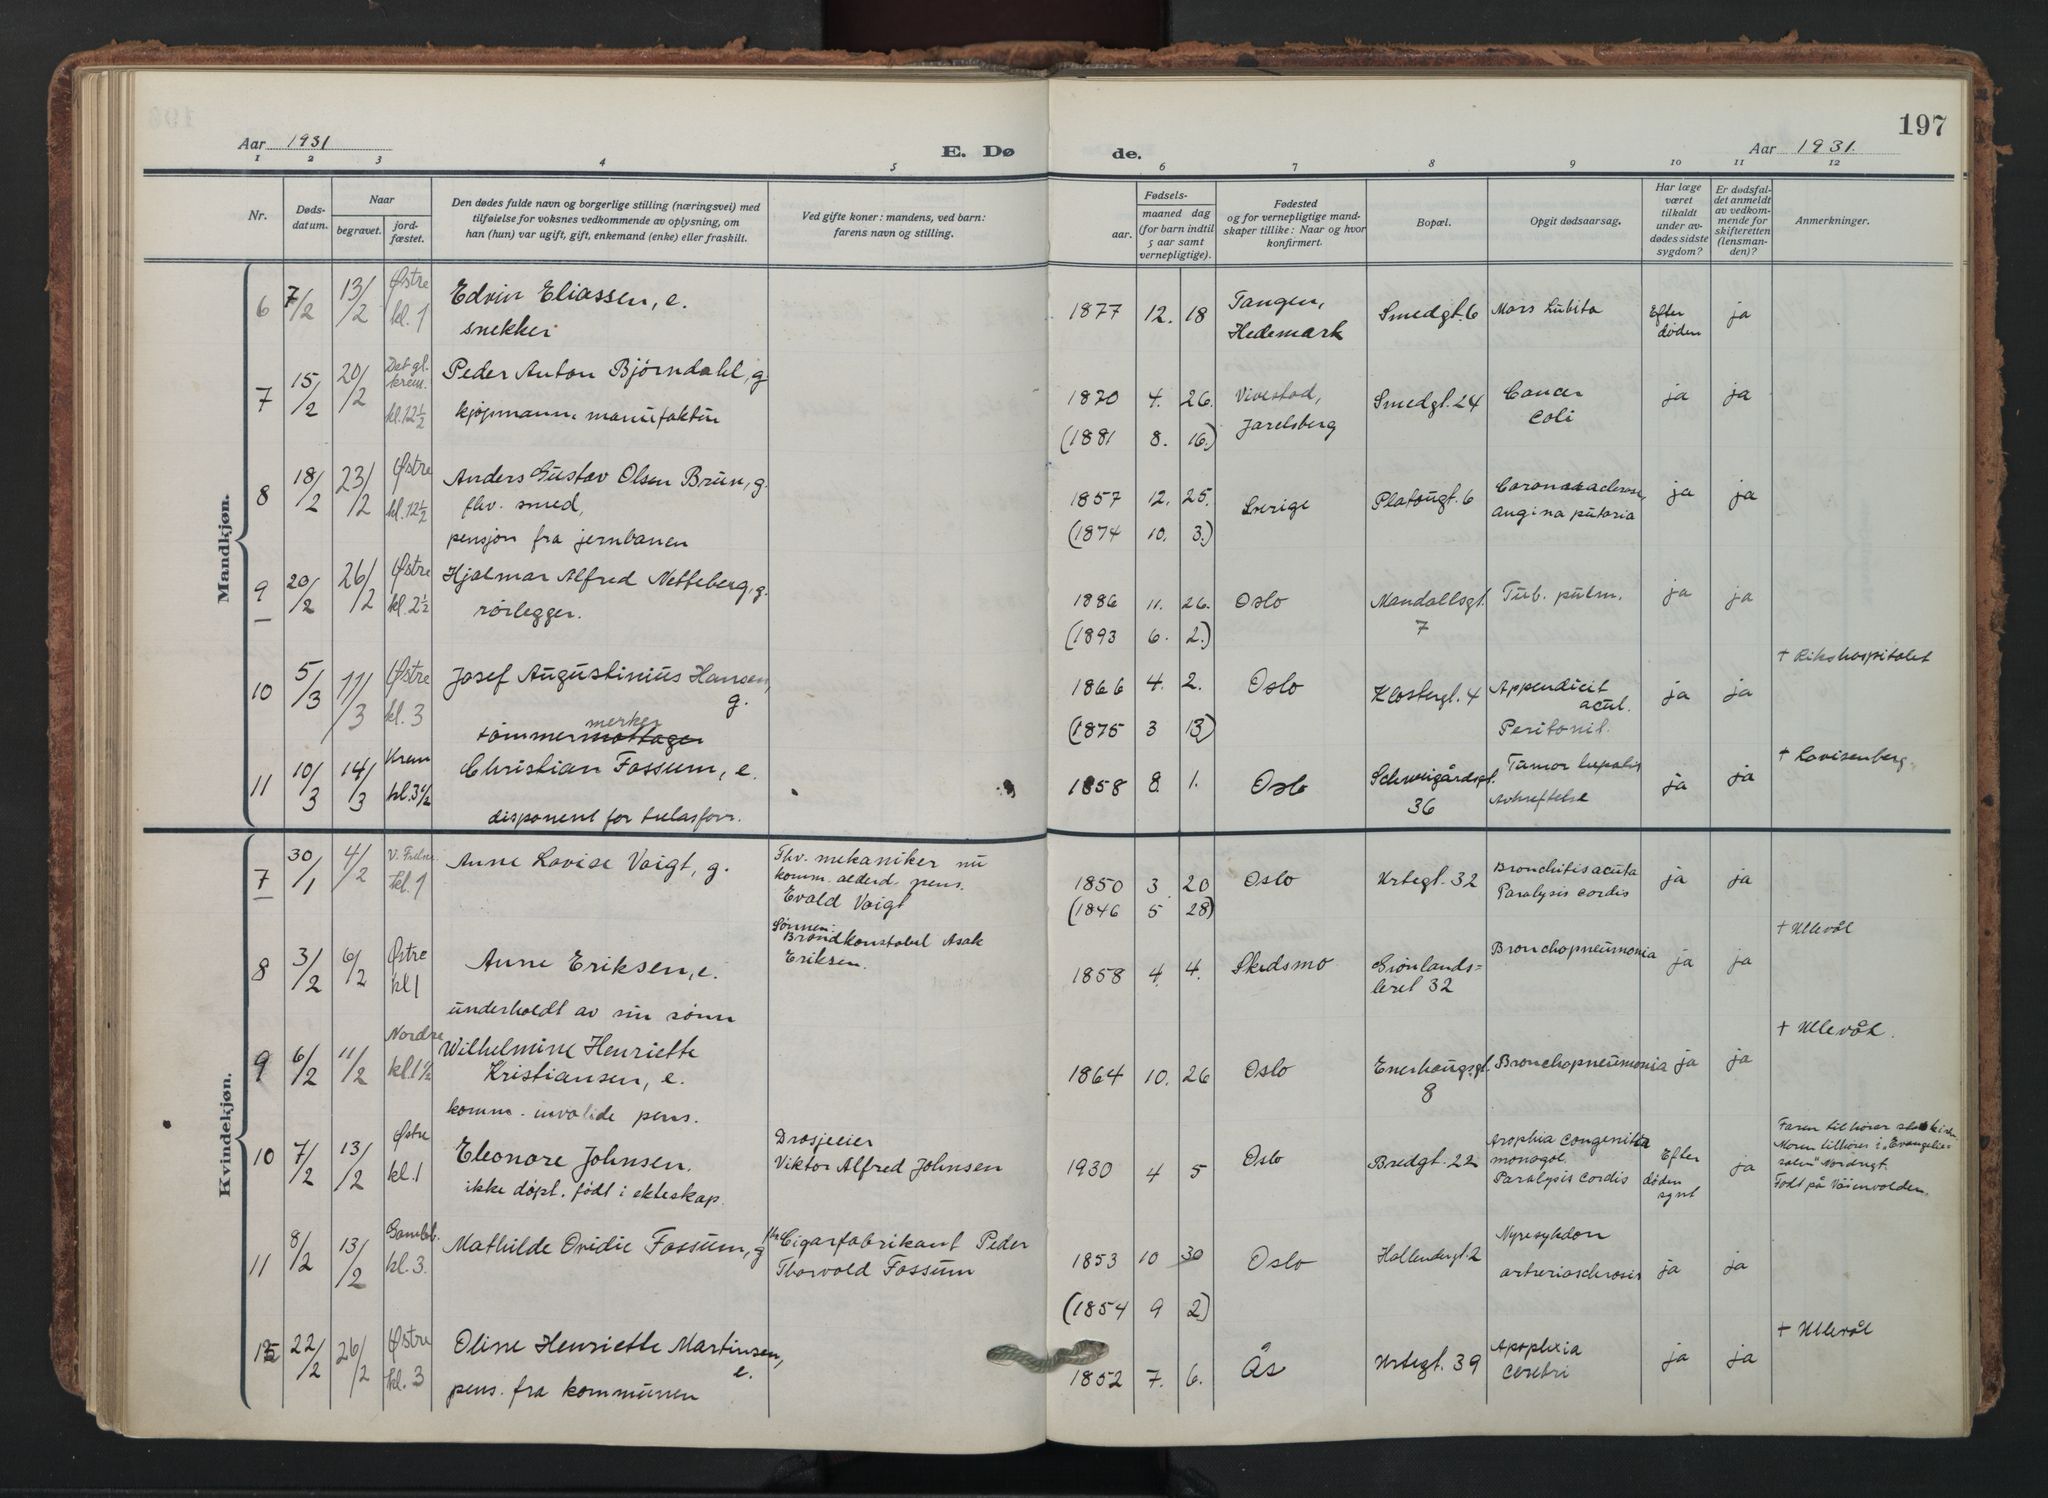 197
Aar 1931
E. Dø
de.
Aar 1931.
1 2 3 4 5 6 7 8 9 10 11 12
Nr.
Døds-
datum.
Naar
begravet.
jord-
fæstet.
Den dødes fulde navn og borgerlige stilling (næringsvei) med
tilføielse for voksnes vedkommende av oplysning, om
han (hun) var ugift, gift, enkemand (enke) eller fraskilt.
Ved gifte koner: mandens, ved barn:
farens navn og stilling.
Fødsels-
aar.
maaned dag
(for barn indtil
5 aar samt
vernepligtige).
Fødested
og for vernepligtige mand-
skaper tillike: Naar og hvor
konfirmert.
Bopæl.
Opgit dødsaarsag.
Har læge
været
tilkaldt
under av-
dødes sidste
sygdom?
Er dødsfal-
det anmeldt
av vedkom-
mende for
skifteretten
(lensman-
den)?
Anmerkninger.
Mandkjøn.
6 7/2 13/2 Østre kl. 1
Edvin Eliassen, e.
snekker
1877 12. 18 Tangen,
Hedemark
Smedgt. 6 Mors Subita
Efter
døden
ja
7 15/2 20/2 Det gl.
krem.
kl. 12½
Peder Anton Bjørndahl, g.
kjøpmann, manufaktur
1870 4. 26. Vivestad,
Jarelsberg
(1881 8. 16.)
Smedgt. 24 Cancer
coli
ja ja
8 18/2 23/2 Østre
kl. 12½
Anders Gustav Olsen Brun, g.
fhv. smed,
pensjon fra jernbanen
1857 12. 25. Sverige
(1874 10. 3.)
Platougt. 6
ja ja
9 20/2 26/2 Østre
kl. 2½
Hjalmar Alfred Netteberg, g.
rørlegger.
1886 11. 26. Oslo
(1893 6. 2.)
Mandallsgt.
7
Tub. pulm.
ja ja
10 5/3 11/3 Østre
kl. 3
Josef Augustinius Hansen,
g.
merker
tømmermottager
1866 4. 2. Oslo
(1875 3 13)
Klostergt. 4 Appendicit
acut.
Peritonit.
ja ja
+ Rikshospitalet
11 10/3 14/3 Krem
kl. 3½
Christian Fossum, e.
disponent for
1858 8. 1. Oslo
Schweigårdsgt.
36
Tumor hepatis
Avkreftelse
ja ja
+ Lovisenberg.
Kvindekjøn.
7 30/1 4/2 V. Frelser.
kl. 1
Anne Lovise Voigt, g.
Fhv. mekaniker nu
komm. alderd. pens.
Evald Voigt
1850 3 20 Oslo
(1846 5 28)
Urtegt. 32 Bronchitis acuta
Paralysis cordis
ja ja
8 3/2 6/2 Østre
kl 1
Anne Eriksen, e.
underholdt av sin sønn
Sønnen:
Brandkonstabel Asak
Eriksen.
1858 4. 4. Skedsmo
Grønlands-
leret 32
Bronchopneumonia
ja ja
+ Ullevål
9 6/2 11/2 Nordre
kl. 1½
Wilhelmine Henriette
Kristiansen, e.
komm. invalide pens.
1864 10. 26 Oslo
Enerhaugsgt.
8
Bronchopneumonia
ja ja
+ Ullevål.
10 7/2 13/2 Østre
kl. 1
Eleonore Johnsen.
ikke døpt. født i ekteskap.
Drosjeeier
Viktor Alfred Johnsen
1930 4 5 Oslo
Bredgt. 22
Arophia congenitta
mongol.
Paralysis cordis
Efter
døden
synt
ja
Faren tilhører statskirk.
Moren tilhører i „Evangelie-
salen" Nordregt.
Født på Vøienvolden.
11 8/2 13/2 Gamleb.
kl. 3.
Mathilde Ovidie Fossum, g
fhv. Cigarfabrikant Peder
Thorvald Fossum
1853 10 30 Oslo
(1854 9 2)
Hollendergt. 2 Nyresykdom
arteriosclerosis
ja ja
12 22/2 26/2 Østre
kl. 3
Oline Henriette Martinsen,
e.
pens. fra kommunen
1852 7. 6. Ås
Urtegt. 39
Apoplexia
cerebri
ja ja
+ Ullevål